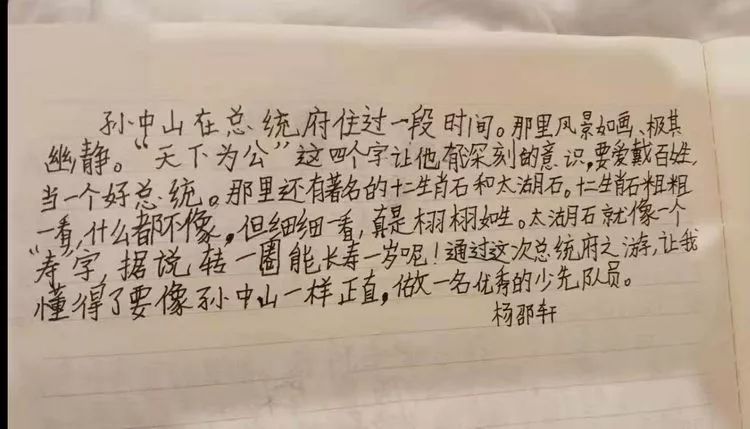 孙中山在总统府住过一段时间。那里风景如画、极其
幽静。“天下为公”这四个字让他有深刻的意识，要爱戴百姓，
当一个好总统。那里还有著名的十二生肖石和太湖石。十二生肖石粗粗
一看，什么都不像，但细细一看，真是栩栩如生。太湖石就像一个
“寿”字，据说转一圈能长寿一岁呢！通过这次总统府之游，让我
懂得了要像孙中山一样正直，做一名优秀的少先队员。
杨邵轩